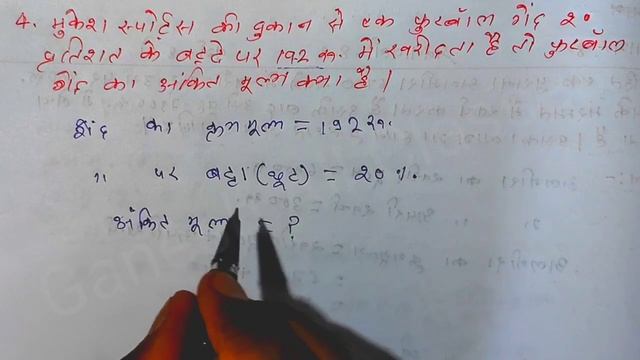 4. मुकेश स्पोर्ट्स की दुकान से एक फुटबॉल गेंद २०
प्रतिशत के बट्टे पर 192 रु. में खरीदता है तो फुटबॉल
गेंद का अंकित मूल्य क्या है।
गेंद का क्रय मूल्य = 192 रु.
,, पर बट्टा (छूट) = 20 %.
अंकित मूल्य = ?